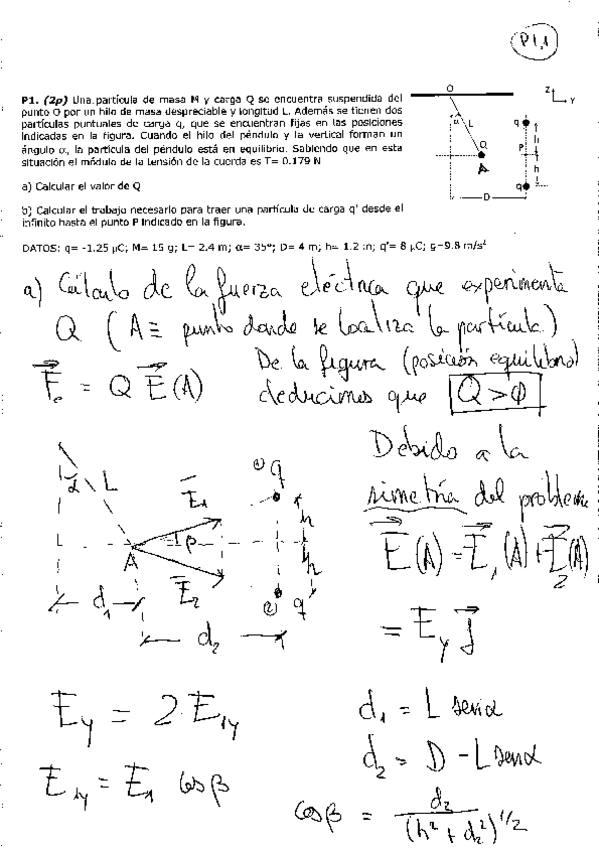 P1,1
P1. (2p) Una partícula de masa M y carga Q se encuentra suspendida del
punto O por un hilo de masa despreciable y longitud L. Además se tienen dos
partículas puntuales de carga q, que se encuentran fijas en las posiciones
indicadas en la figura. Cuando el hilo del péndulo y la vertical forman un
ángulo α, la partícula del péndulo está en equilibrio. Sabiendo que en esta
situación el módulo de la tensión de la cuerda es T= 0.179 N
a) Calcular el valor de Q
b) Calcular el trabajo necesario para traer una partícula de carga q' desde el
infinito hasta el punto P indicado en la figura.
DATOS: q= -1.25 µC; M= 15 g; L= 2.4 m; α= 35º; D= 4 m; h= 1.2 m; q'= 8 µC; g=9.8 m/s²
O
Z
Y
α
L
q
h
Q
P
A
h
q
D
a) Cálculo de la fuerza eléctrica que experimenta
Q (A ≡ punto donde se localiza la partícula)
F⃗e = Q E⃗(A)
De la figura (posición equilibrio)
deducimos que Q>0
Debido a la
simetría del problema
E⃗(A) = E⃗1(A) + E⃗2(A)
= Ey j⃗
α L
E⃗1
(-) q
h
β
A
h
E⃗2
(-) q
d1
d2
Ey = 2 E1y
d1 = L senα
d2 = D - L senα
E1y = E1 cos β
cos β = d2 / (h² + d2²)^1/2